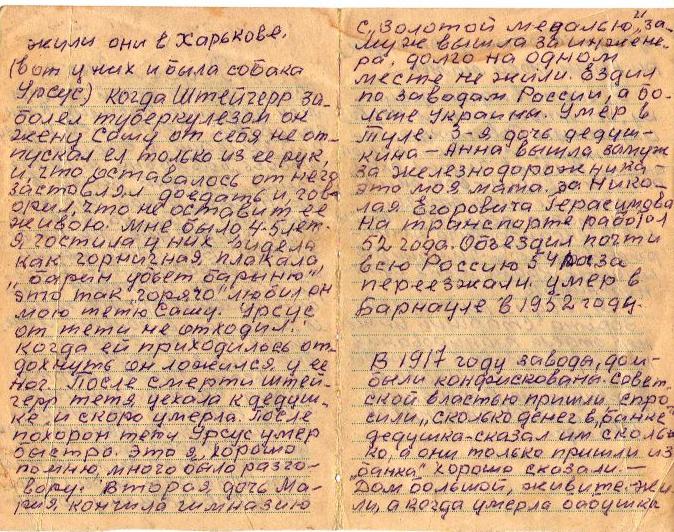 жили они в Харькове.
(вот у них и была собака
Урсус) когда Штейгерр за-
болел туберкулезом он
жену Сашу от себя не от-
пускал ел только из ее рук,
и, что оставалось от него
заставлял доедать и, гов-
орил, что не оставит ее
живою. мне было 4-5 лет.
я гостила у них видела
как горничная плакала
„барин убьет барыню",
это так „горячо" любил он
мою тетю Сашу. Урсус
от тети не отходил.
когда ей приходилось от-
дохнуть он ложился у ее
ног. После смерти штей-
герр тетя уехала к дедуш-
ке и скоро умерла. После
похорон тети Урсус умер
быстро. это я хорошо
помню, много было разго-
вору. Вторая дочь Ма-
рия кончила гимназию
с „золотой медалью", за-
муж вышла за инжене-
ра, долго на одном
месте не жили. Ездил
по заводам России, а бо-
льше Украины. умер в
Туле. 3-я дочь дедуш-
кина – Анна вышла замуж
за железнодорожника –
это моя мама. за Нико-
лая Егоровича Герасимова
на транспорте работал
52 года. Объездил почти
всю Россию 54 раза
переезжали умер в
Барнауле в 1952 году.
В 1917 году заводы, дом –
были конфискована. Совет-
ской властью пришли спро-
сили „сколько денег в „банке"
дедушка-сказал им скольь-
ко, а они только пришли из
банка" хорошо сказали. –
Дом большой, живите. жи-
ли, а когда умерла бабушка